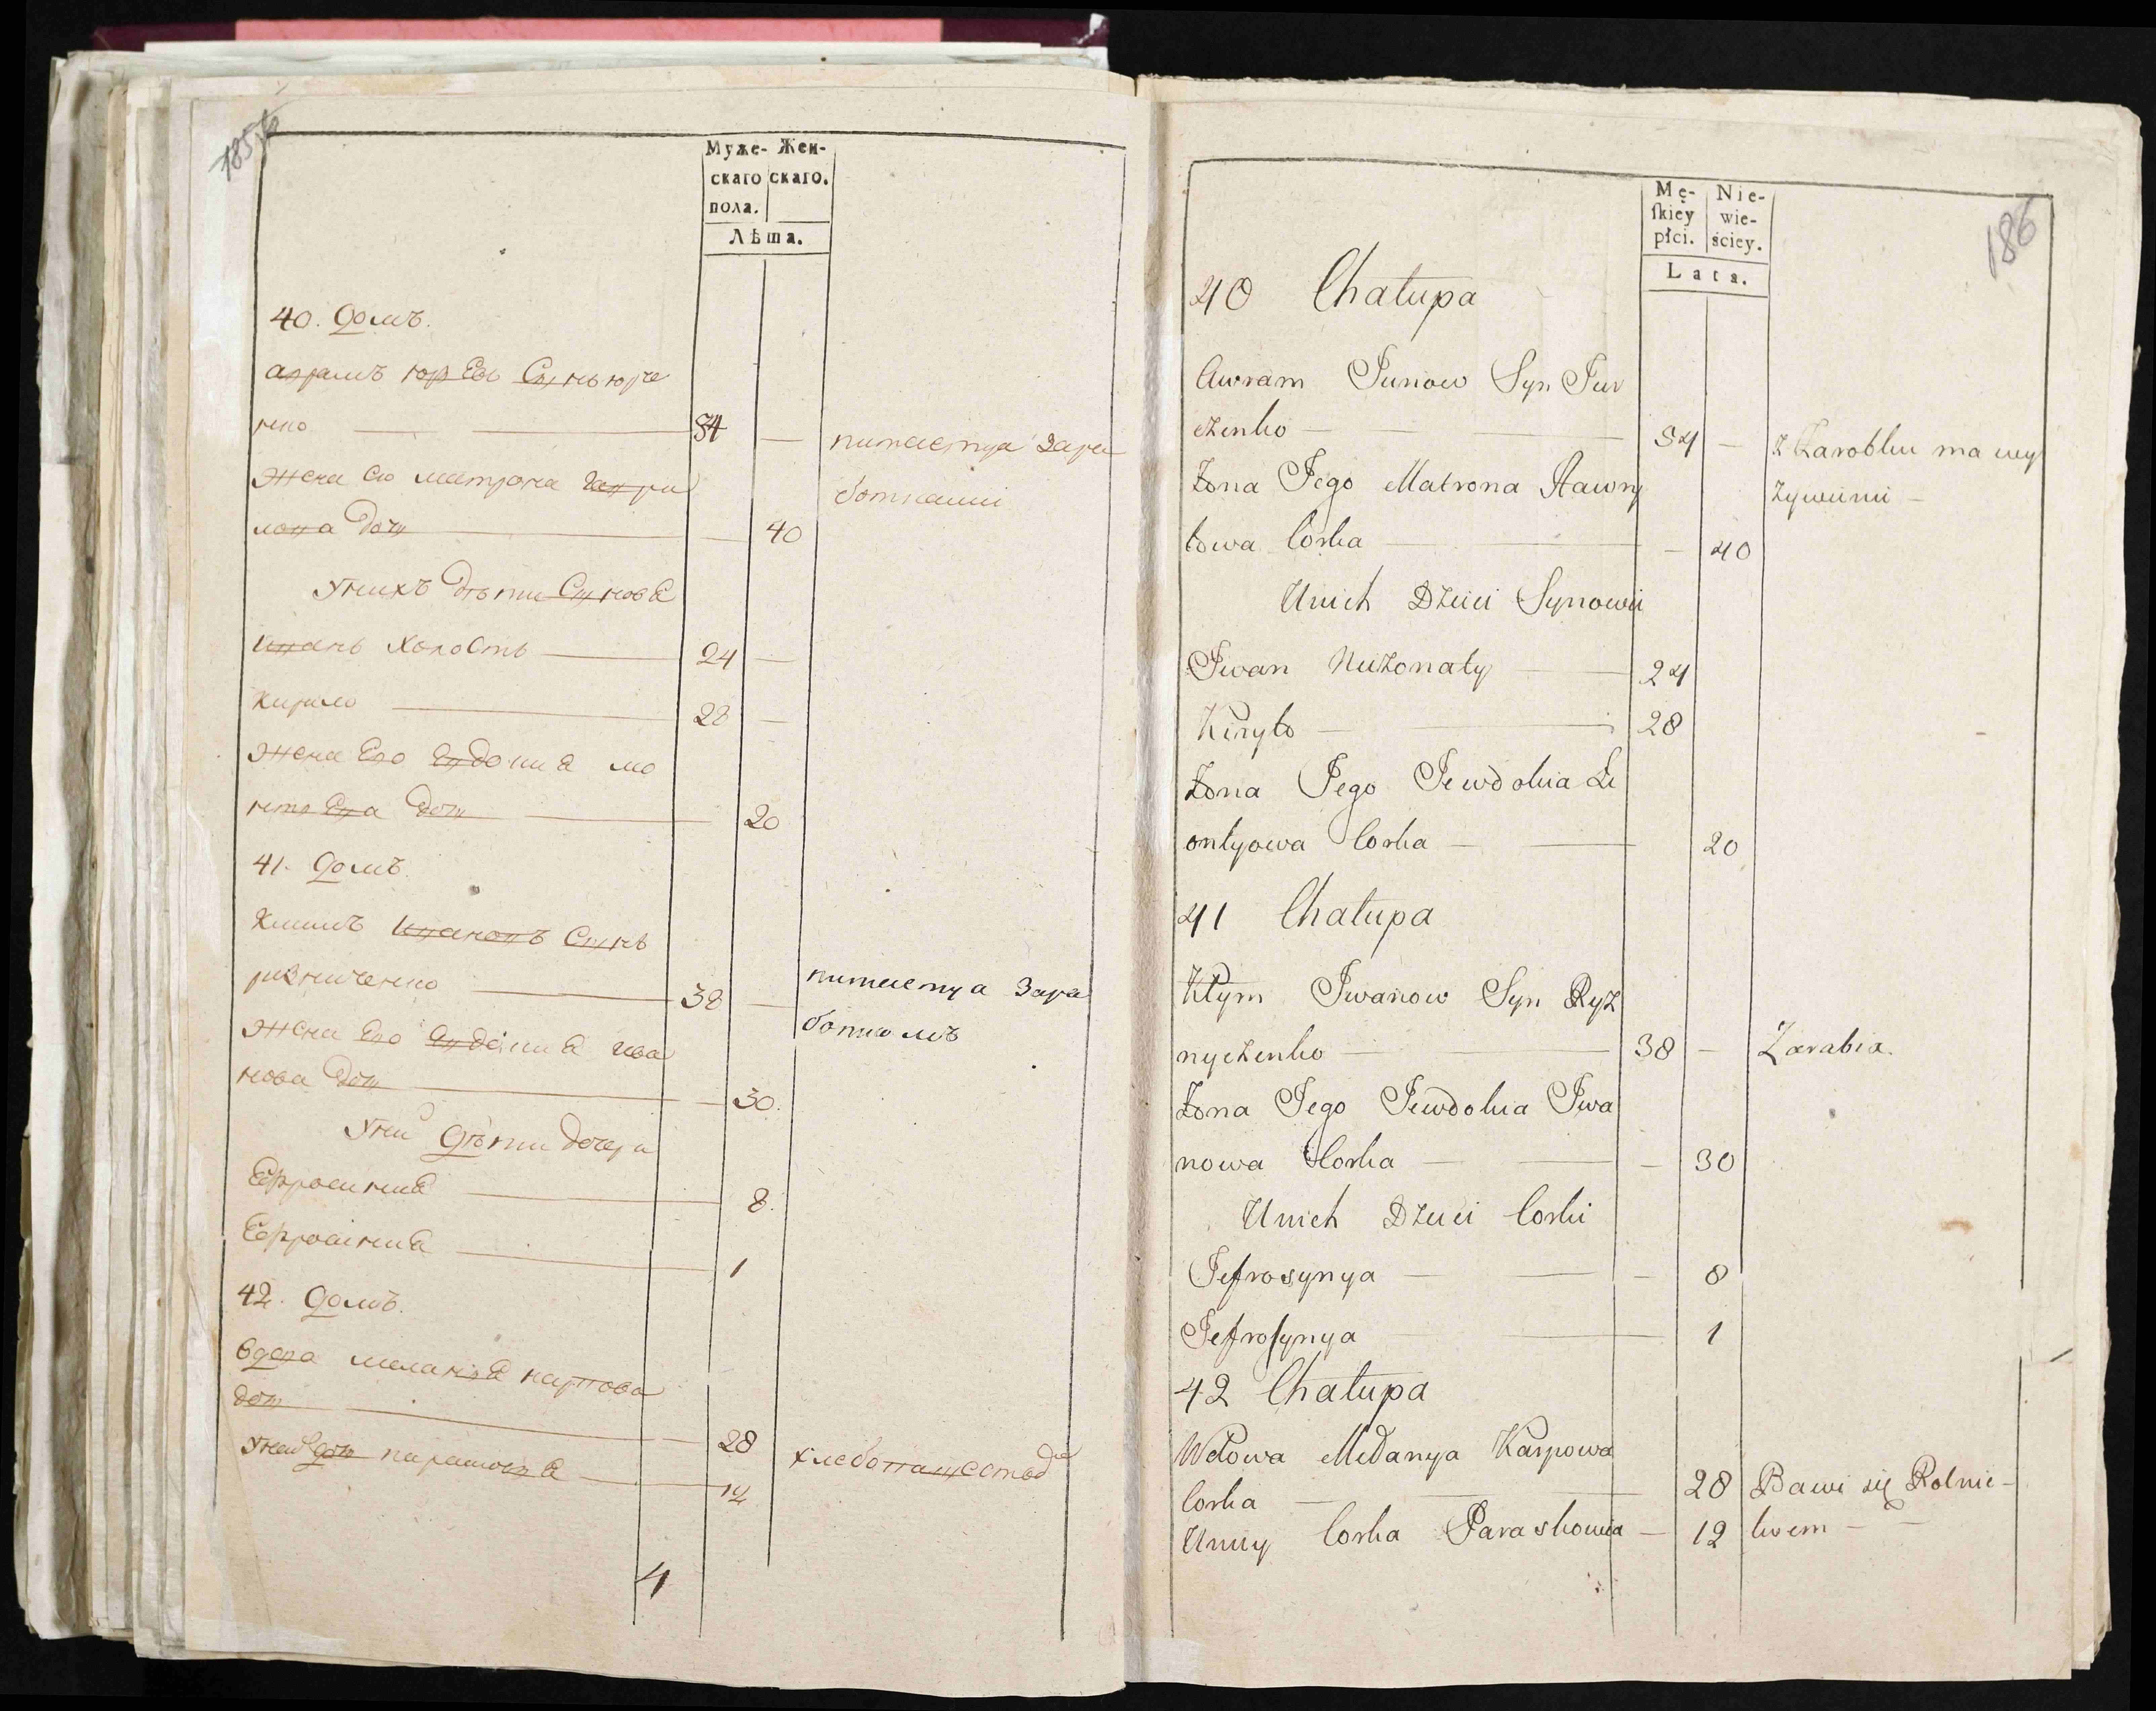 185
Муже- Жен-
скаго скаго.
пола.
Лѣта.
40. Домъ.
аврамъ юрьевъ Сынъ юрче
нко — — 54 — питается зара
Жена его матрона гаври ботками
лова дочь — — 40
У нихъ дѣти Сынове
иванъ холостъ — 24 —
Кирило — 28 —
Жена Его Евдокиа ле
онтиева дочь — 20
41. Домъ.
Климъ Ивановъ Сынъ
ризниченко — 38 — питается зара
Жена Его Евдокиа ива боткомъ
нова дочь — — 30.
У ни дѣти дочери
Ефросиниа — 8.
Ефросиниа — 1
42. Домъ.
вдова меланиа карпова
дочь — — 28 хлебопашества
У неи дочь парасковиа — 12
4
186
Mę- Nie-
skiey wie-
płci. ściey.
Lata.
40 Chałupa
Awram Juriow Syn Jur
czenko — — 54 — z Zarobku ma wy
Żona Jego Matrona Hawry żywieni —
łowa Corka — — 40
U nich Dzieci Synowie
Jwan Nieżonaty — 24
Kiryło — 28
Żona Jego Jewdokia Le
ontyowa Corka — — 20
41 Chałupa
Kłym Jwanow Syn Ryz
nyczenko — — 38 — Zarabia.
Żona Jego Jewdokia Jwa
nowa Corka — — — 30
U nich Dzieci Corki
Jefrosynya — — — 8
Jefrosynya — — 1
42 Chałupa
Wdowa Mełanya Karpowa
Corka — — 28 Bawi się Rolnic-
U niey Corka Paraskowia — 12 twem — —